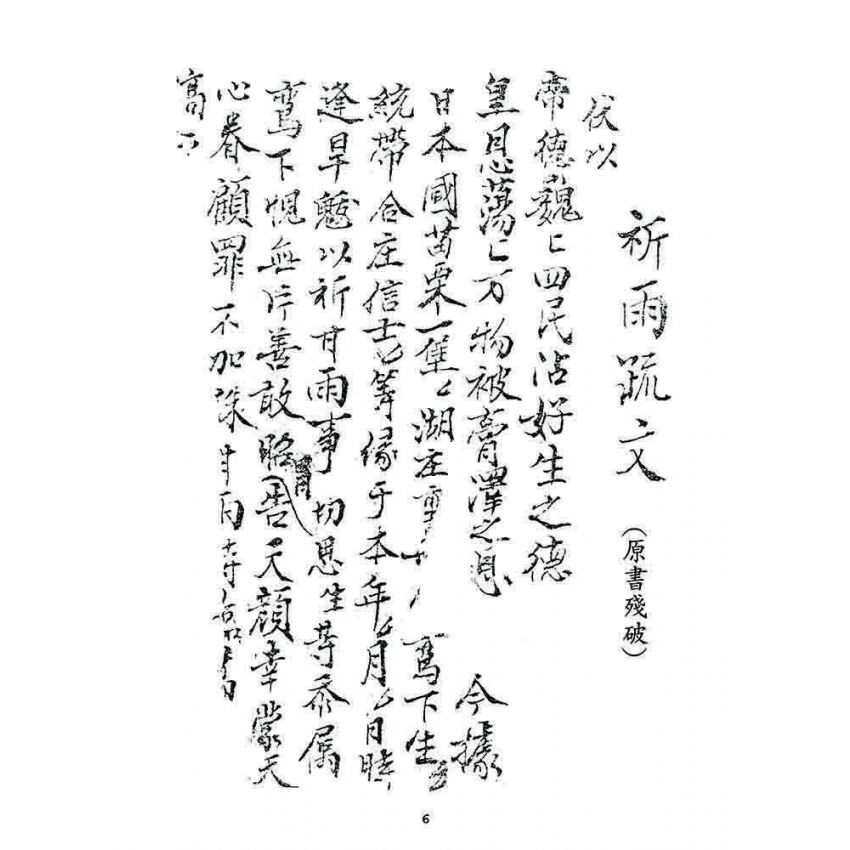 祈雨疏文（原書殘破）
伏以
帝德巍〻四民沾好生之德
皇恩蕩〻万物被膏澤之恩 今據
日本國苗栗一堡〻湖庄 鸞下生
統帶合庄信士等緣于本年 月 日時
逢旱魃以祈甘雨事 切思生等忝属
鸞下愧無片善敢昭告天顏幸蒙天
心眷顧罪不加誅甘雨
富
6